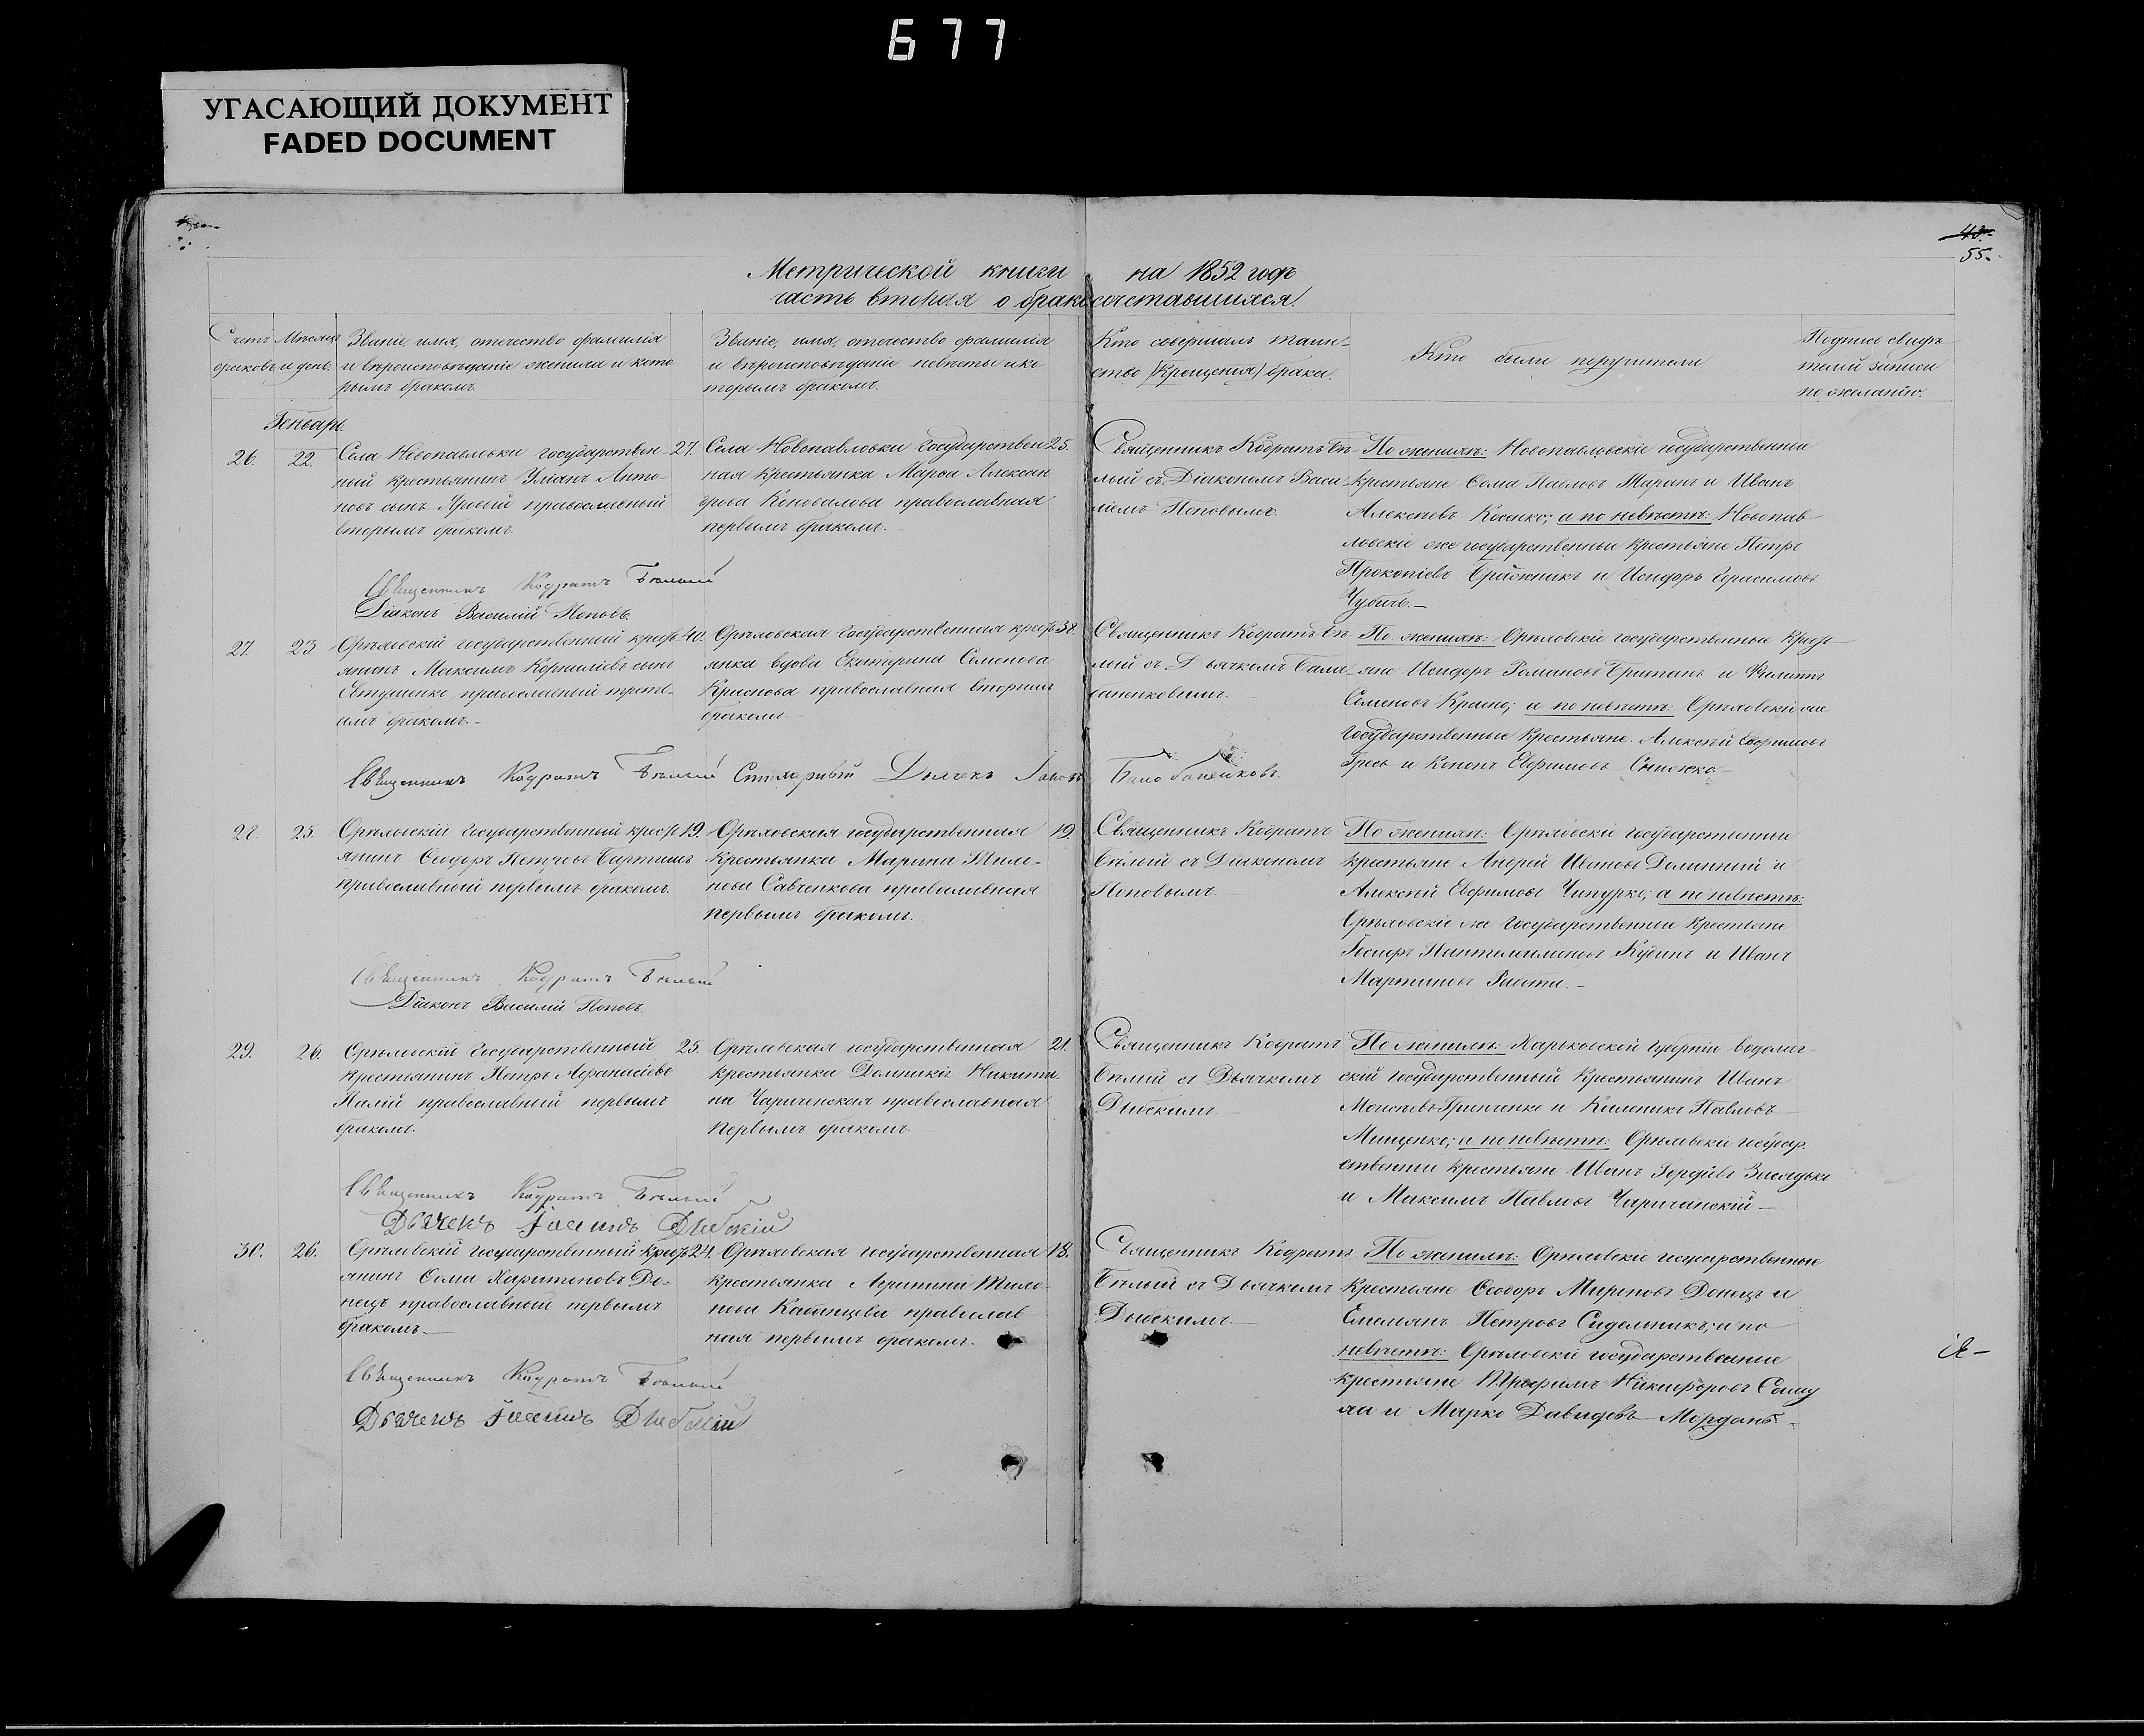 677
УГАСАЮЩИЙ ДОКУМЕНТ
FADED DOCUMENT
55.
Метрической книги на 1852 годъ
часть вторая о бракосочетавшихся.
Счетъ браковъ
Мѣсяцъ и день.
Званіе, имя, отечество фамилія
и вѣроисповѣданіе жениха и кото
рымъ бракомъ.
Званіе, имя, отечество фамилія
и вѣроисповѣданіе невѣсты и ко
торымъ бракомъ.
Кто совершалъ таин-
ство (Крещенія) брака.
Кто были поручители
Подпись свидѣ
телей записи
по желанію.
Генваръ.
26.
22.
Села Новопавловки государствен
ный крестьянинъ Уліанъ Анто-
новъ сынъ православный
вторымъ бракомъ.
27.
Села Новопавловки государствен
ная крестьянка Марѳа Алексан
дрова Коновалова православная
первымъ бракомъ.
25.
Священникъ Кодратъ Бѣ-
лый съ Діакономъ Васи
ліемъ Поповымъ.
По женихѣ: Новопавловскіе государственные
крестьяне Ѳома Павловъ и Иванъ
Алексѣевъ Косенко; а по невѣстѣ: Новопав-
ловскіе же государственные крестьяне Петръ
Прокопіевъ и Исидоръ Герасимовъ
Чубичъ.—
Священникъ Кодратъ Бѣлый
Діаконъ Василій Поповъ
27.
23.
Орѣловскій государственный крест
янинъ Максимъ Корниліевъ сынъ
Евтушенко православный треть-
имъ бракомъ.-
40.
Орѣловская государственная крест
янка вдова Екатерина Семенова
Краснова православная вторымъ
бракомъ.
38.
Священникъ Кодратъ Бѣ
лый съ Дьячкомъ
По женихѣ: Орѣловскіе государственные крест-
яне Исидоръ Романовъ Британь и Филиппъ
Семеновъ Красно; а по невѣстѣ: Орѣловскіе же
государственные крестьяне Алексѣй Евфимовъ
и Кононъ Евфимовъ Снижко-
Священникъ Кодратъ Бѣлый
28.
25.
Орѣловскій государственный крест
янинъ Ѳеодоръ Петровъ
православный первымъ бракомъ.
19.
Орѣловская государственная
крестьянка Марина
Савченкова православная
первымъ бракомъ.
19.
Священникъ Кодратъ
Бѣлый съ Діакономъ
Поповымъ.
По женихѣ: Орѣловскіе государственные
крестьяне Андрей Ивановъ Долинный и
Алексѣй Евфимовъ Чипурко; а по невѣстѣ:
Орѣловскіе же государственные крестьяне
Іосифъ Пантелимоновъ и Иванъ
Мартиновъ
Священникъ Кодратъ Бѣлый
Діаконъ Василій Поповъ
29.
26.
Орѣловскій государственный
крестьянинъ Петръ Аѳанасіевъ
Палій православный первымъ
бракомъ.
25.
Орѣловская государственная
крестьянка Домникія Никити-
на Чаричанская православная
первымъ бракомъ.
21.
Священникъ Кодратъ
Бѣлый съ Дьячкомъ
Дибскимъ.
По женихѣ: Харьковской губерніи
скій государственный крестьянинъ Иванъ
Моисѣевъ Гринченко и Каленикъ Павловъ
Мищенко; а по невѣстѣ: Орѣловскіе государ
ственные крестьяне Иванъ
и Максимъ Павловъ Чаричанскій—
Священникъ Кодратъ Бѣлый
Дьячекъ Іоаннъ Дибскій
30.
26.
Орѣловскій государственный крест
янинъ Ѳома Харитоновъ До-
нецъ православный первымъ
бракомъ.—
24.
Орѣловская государственная
крестьянка
православ
ная первымъ бракомъ.
18.
Священникъ Кодратъ
Бѣлый съ Дьячкомъ
Дибскимъ.—
По женихѣ: Орѣловскіе государственные
крестьяне Ѳеодоръ Мироновъ Донецъ и
Емеліянъ Петровъ Сидельникъ; а по
невѣстѣ: Орѣловскіе государственные
крестьяне Трофимъ Никифоровъ
и Марко Давидовъ
Священникъ Кодратъ Бѣлый
Дьячекъ Іоаннъ Дибскій